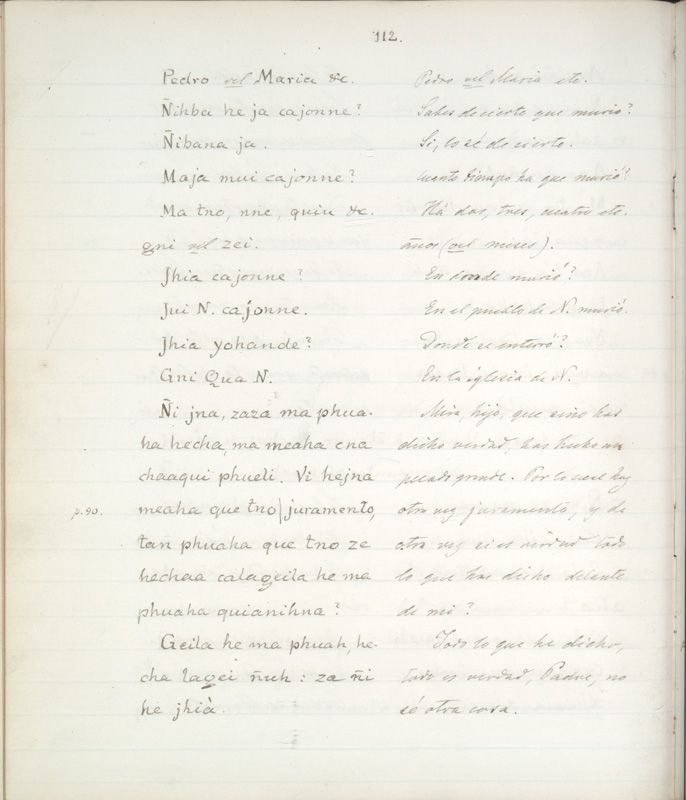 112.
Pedro vel Maria &c. Pedro vel Maria etc.
Ñihba he ja cajonne? Sabes de cierto que murió?
Ñibana ja. Si, lo sé de cierto.
Maja mui cajonne? Cuanto tiempo ha que murió?
Ma tno, nne, quiu &c. Há dos, tres, cuatro etc.
gni vel zei. años (vel meses).
Jhia cajonne? En donde murió?
Jui N. cajonne. En el pueblo de N. murió.
Jhia yohande? Donde se enterró?
Gni Qua N. En la iglesia de N.
Ñi jna, zaza ma phua- Mira, hijo, que si no has
ha hecha, ma meaha cna dicho verdad, has hecho un
chaaqui phueli. Vi hejna pecado grande. Por lo cual hay
p. 90. meaha que tno juramento, otra vez juramento, y de
tan phuaha que tno ze otra vez si es verdad todo
hechaa calageila he ma lo que has dicho delante
phuaha quianihna? de mi?
Geila he ma phuah, he- Todo lo que he dicho,
cha lagei ñuh: za ñi todo es verdad, Padre, no
he jhià. sé otra cosa.